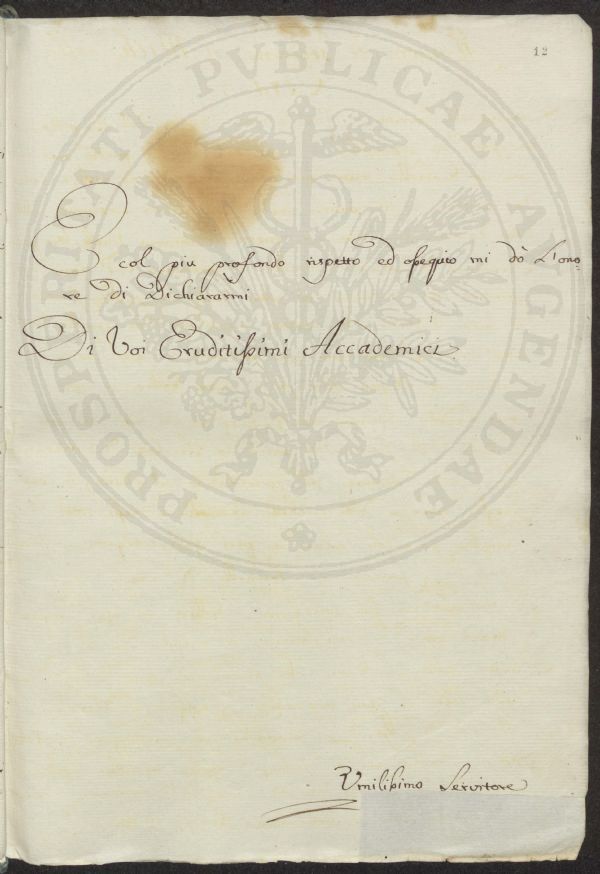 12
PROSPERITATI PVBLICAE AVGENDAE
E col piu profondo rispetto ed oßequio mi dò l'ono=
re di Dichiararmi
Di Voi Eruditißimi Accademici
Vmilißimo Servitore